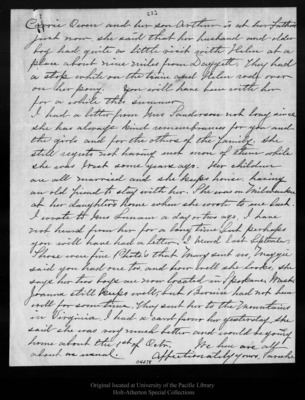 232
Carrie Owen and her son Arthur is at her Fathers
just now she said that her husband and older
boy had quite a little visit with Helen at a
place about nine miles from Daggett. They had
a stop while on the train and Helen rode over
on her pony. You will have him with her
for a while this summer
I had a letter from Mrs Sanderson not long since
she has always kind remembrances for you and
the girls and for the others of the family she
still regrets not having seen more of them while
she was West some years ago. Her children
are all married and she keeps house having
an old friend to stay with her. She was in Milwaukee
at her daughters home when she wrote to me last
I wrote to Mrs a day or two ago, I have
not heard from her for a long time but perhaps
you will have had a letter. I heard last
Those were fine Photo's that Mary sent us, Maggie
said you had one too, and how well she looks, she
says her two boys are now located in Spokane Wash
Joanna still keeps well; but Bonnie had not been
well for some time. They sent her to the Mountains
in Virginia. I had a card from her yesterday, she
said she was very much better and would be going
home about the 1st of Octr. We here are all
about as usual. Affectionately yours, Sarah
04678
Original located at University of the Pacific Library
Holt-Atherton Special Collections